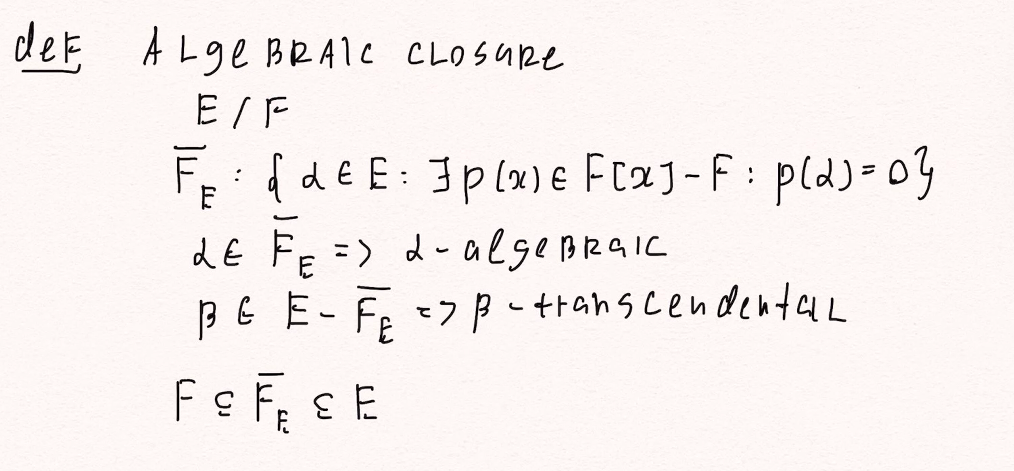 def ALgeBRAIC CLOSURE
E / F
F̅_E : { α ∈ E : ∃ p(x) ∈ F[x] - F : p(α) = 0 }
α ∈ F̅_E => α - algeBRaIC
β ∈ E - F̅_E => β - transcendentaL
F ⊆ F̅_E ⊆ E